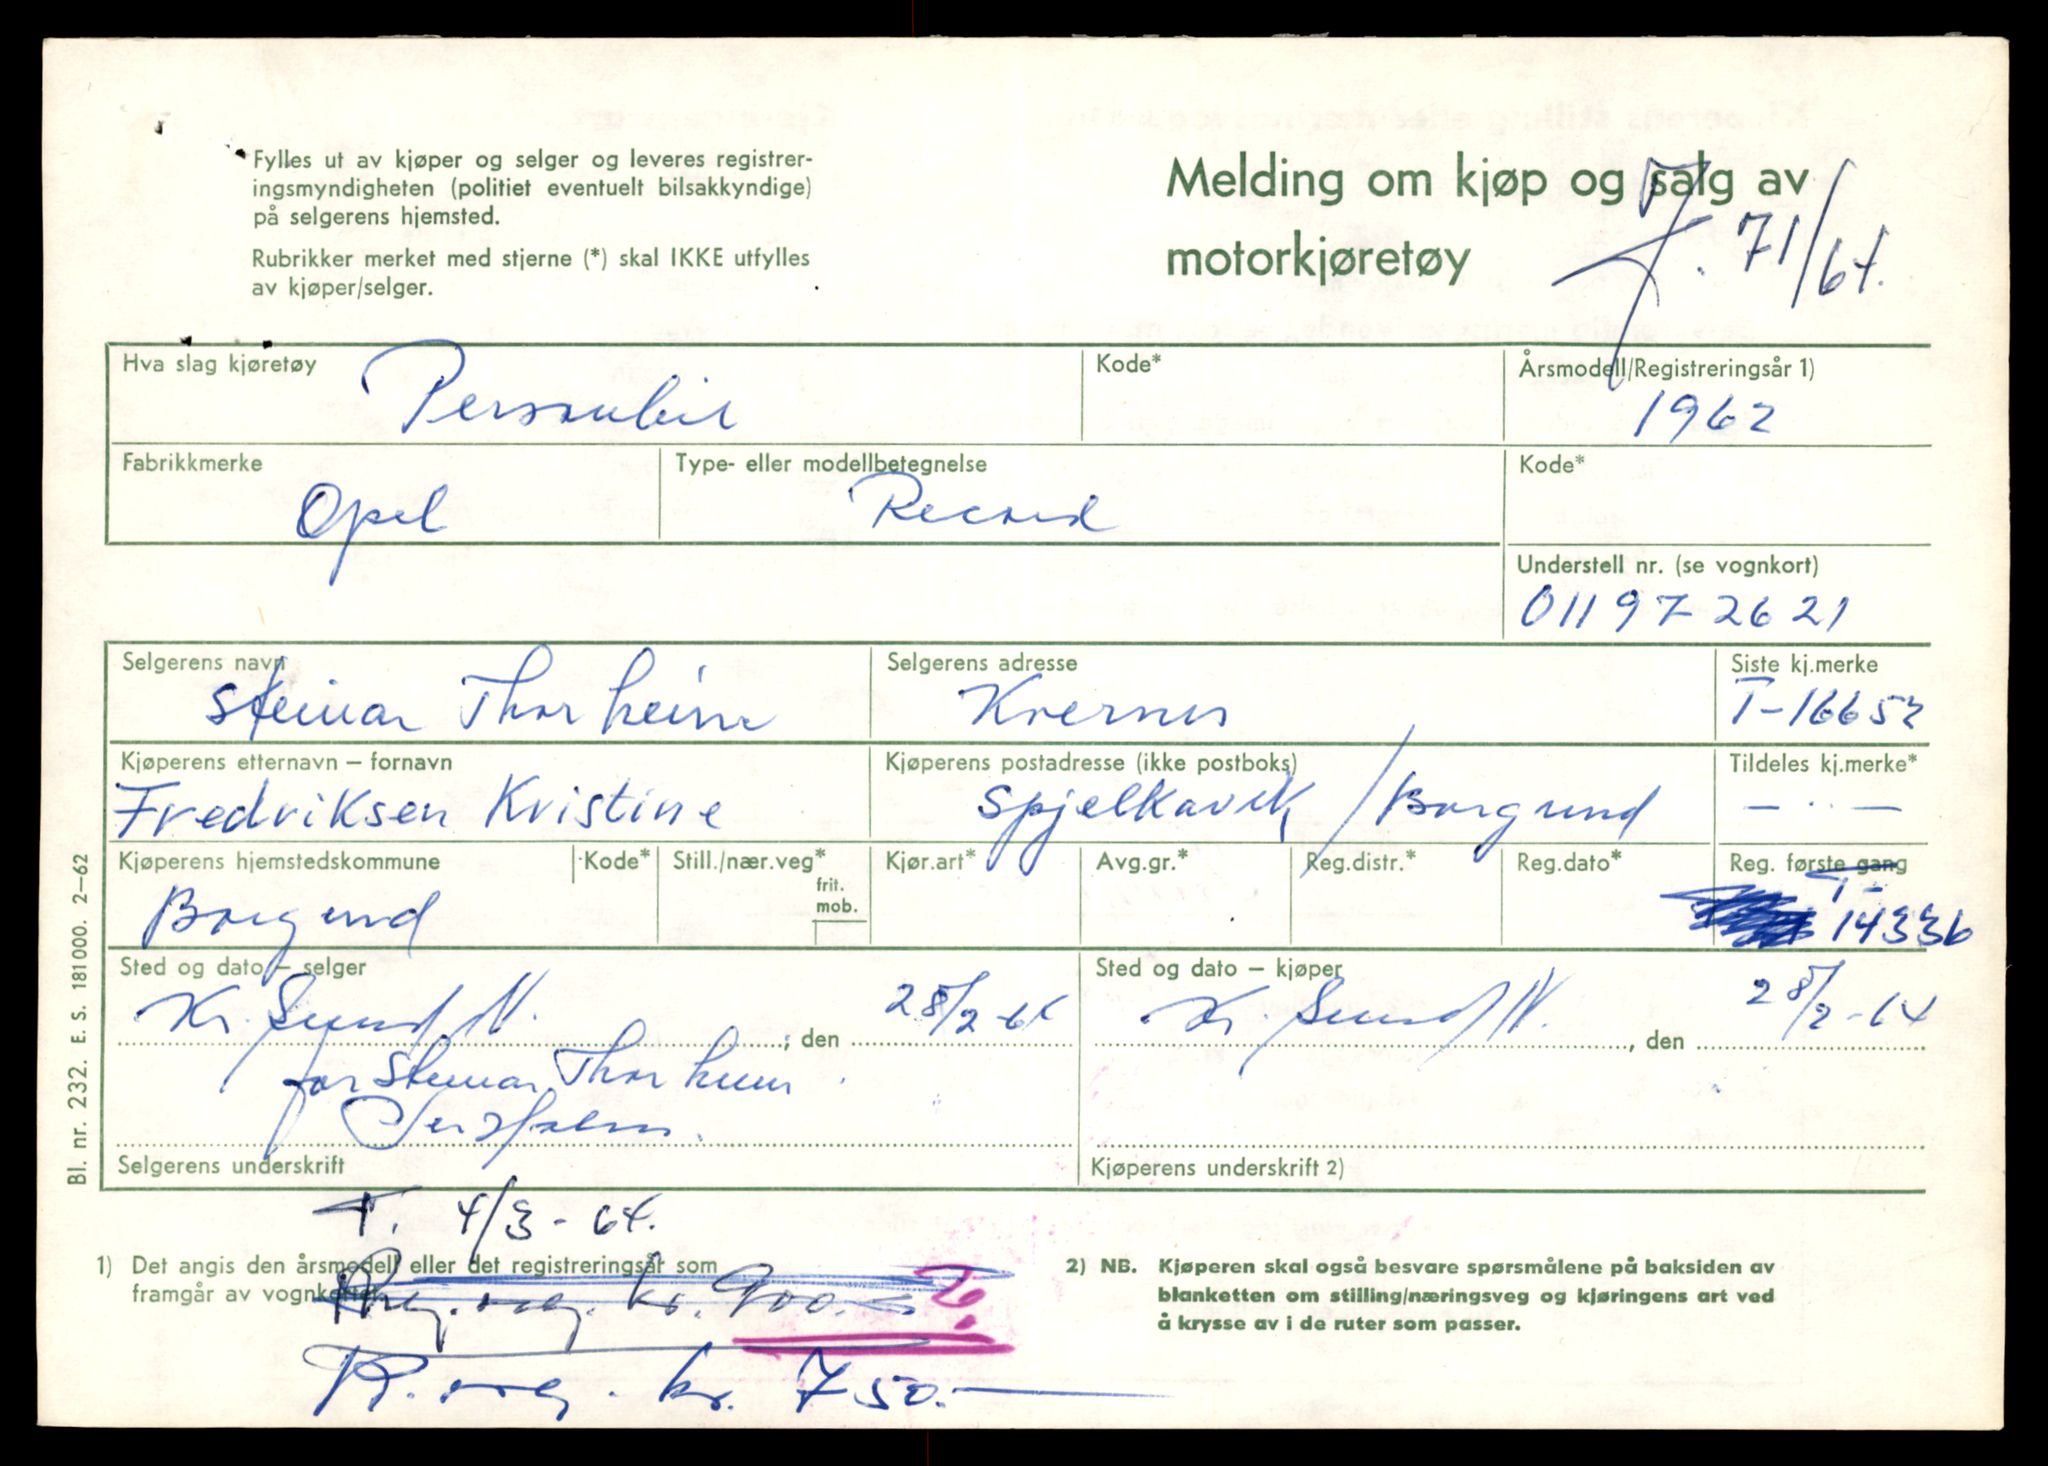 Fylles ut av kjøper og selger og leveres registrer-
ingsmyndigheten (politiet eventuelt bilsakkyndige)
på selgerens hjemsted.
Rubrikker merket med stjerne (*) skal IKKE utfylles
av kjøper/selger.
Melding om kjøp og salg av
motorkjøretøy
J. 71/64.
Hva slag kjøretøy
Personbil
Kode*
Årsmodell/Registreringsår 1)
1962
Fabrikkmerke
Opel
Type- eller modellbetegnelse
Record
Kode*
Understell nr. (se vognkort)
011972621
Selgerens navn
Steinar Thorheim
Selgerens adresse
Kvernes
Siste kj.merke
T-16652
Kjøperens etternavn – fornavn
Fredriksen Kristine
Kjøperens postadresse (ikke postboks)
Spjelkavik / Borgund
Tildeles kj.merke*
— ·· —
Kjøperens hjemstedskommune
Borgund
Kode*
Still./nær.veg*
frit.
mob.
Kjør.art*
Avg.gr.*
Reg.distr.*
Reg.dato*
Reg. første gang
T-
14336
Sted og dato – selger
Kr. Sund N. , den 28/2-64
for Steinar Thorheim
Selgerens underskrift
Sted og dato – kjøper
Kr. Sund N. , den 28/2-64
Kjøperens underskrift 2)
T. 4/3-64.
1) Det angis den årsmodell eller det registreringsår som
framgår av vognkortet.
Reg. avg. kr. 900.-
R. avg. kr. 750.-
2) NB. Kjøperen skal også besvare spørsmålene på baksiden av
blanketten om stilling/næringsveg og kjøringens art ved
å krysse av i de ruter som passer.
Bl. nr. 232. E. S. 181000. 2–62